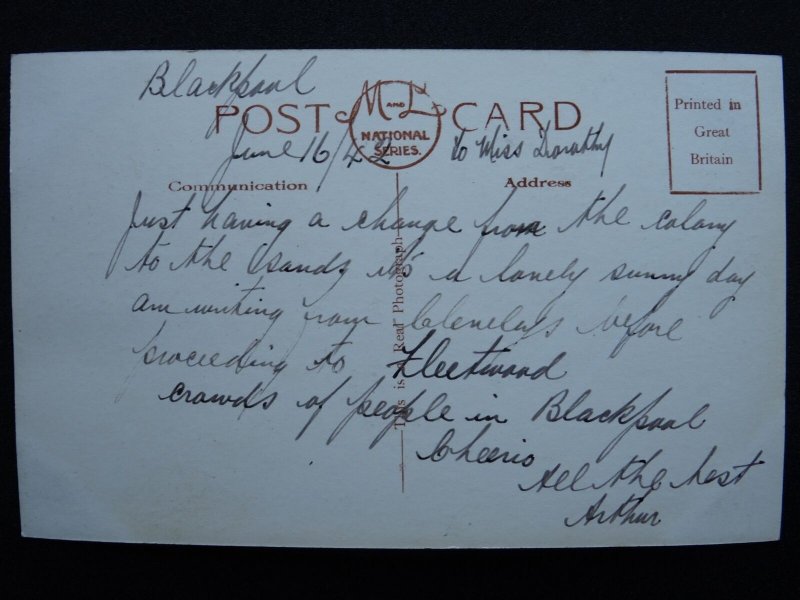 Blackpool
POST CARD
M AND L
NATIONAL
SERIES.
Printed in
Great
Britain
June 16/42 to Miss Dorothy
Communication
Address
This is a Real Photograph
Just having a change from the colony
to the sands it's a lovely sunny day
am writing from Cleveleys before
proceeding to Fleetwood
crowds of people in Blackpool
Cheerio
All the best
Arthur